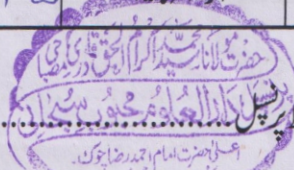 حضرت مولانا سید محمد اکرام الحق قادری مصباحی
پرنسپل
دارالعلوم محبوب سبحانی
اعلیٰ حضرت امام احمد رضا چوک